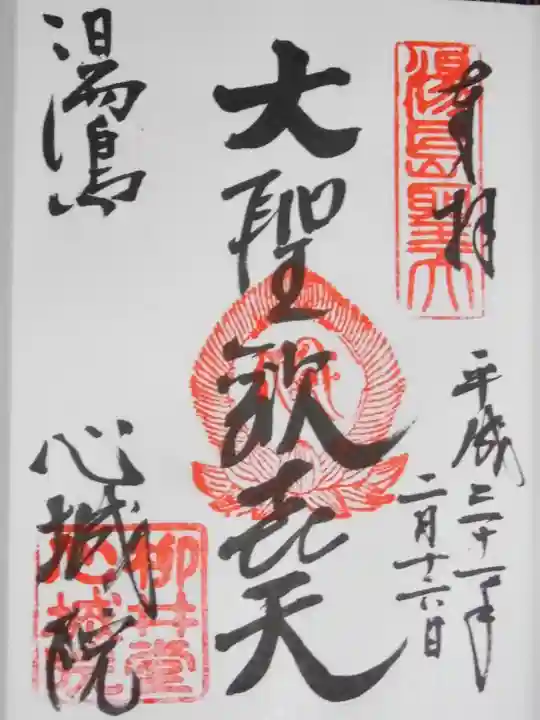 奉拝
湯島聖天
平成三十一年
二月十六日
大聖歓喜天
湯島
心城院
柳井堂
心城院